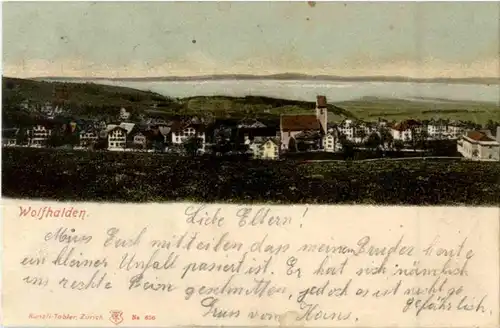 Wolfhalden.
Liebe Eltern!
Muss Euch mitteilen, dass meinem Bruder heute
ein kleiner Unfall passiert ist. Er hat sich nämlich
ins rechte Bein geschnitten, jedoch es ist nicht so
gefährlich.
Gruss vom Hans.
Künzli-Tobler, Zürich.
No